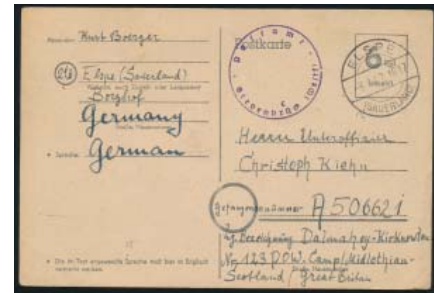 Absender: Kurt Boerger
(21b)
Elspe (Sauerland)
Borghof
Germany
* Sprache: German
* Die im Text angewandte Sprache muß hier in Englisch vermerkt werden.
Postkarte
Postamt
Grevenbrück
6
ELSPE
(SAUERLAND)
Herrn Unteroffizier
Christoph Kiehn
Gefangenennummer A 506621
Lg. Bezeichnung Dalmahoy-Kirknewton
Nr. 123 P.O.W. Camp/Midlothian-
Scotland / Great Britain